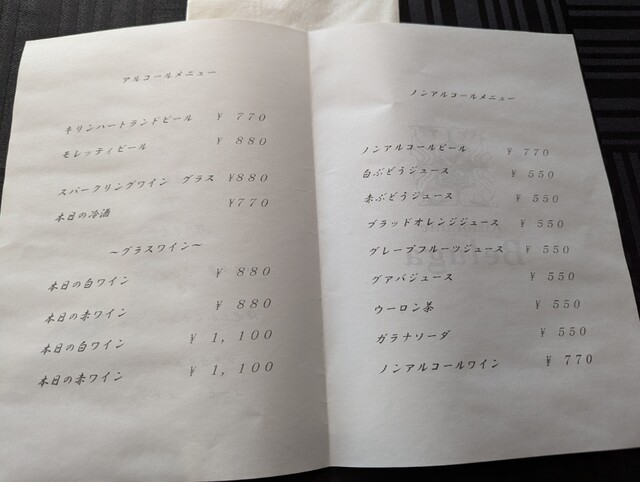 アルコールメニュー
キリンハートランドビール ¥ 770
モレッティビール ¥ 880
スパークリングワイン グラス ¥880
本日の冷酒 ¥770
～グラスワイン～
本日の白ワイン ¥ 880
本日の赤ワイン ¥ 880
本日の白ワイン ¥ 1,100
本日の赤ワイン ¥ 1,100
ノンアルコールメニュー
ノンアルコールビール ¥ 770
白ぶどうジュース ¥ 550
赤ぶどうジュース ¥ 550
ブラッドオレンジジュース ¥ 550
グレープフルーツジュース ¥ 550
グアバジュース ¥ 550
ウーロン茶 ¥ 550
ガラナソーダ ¥ 550
ノンアルコールワイン ¥ 770